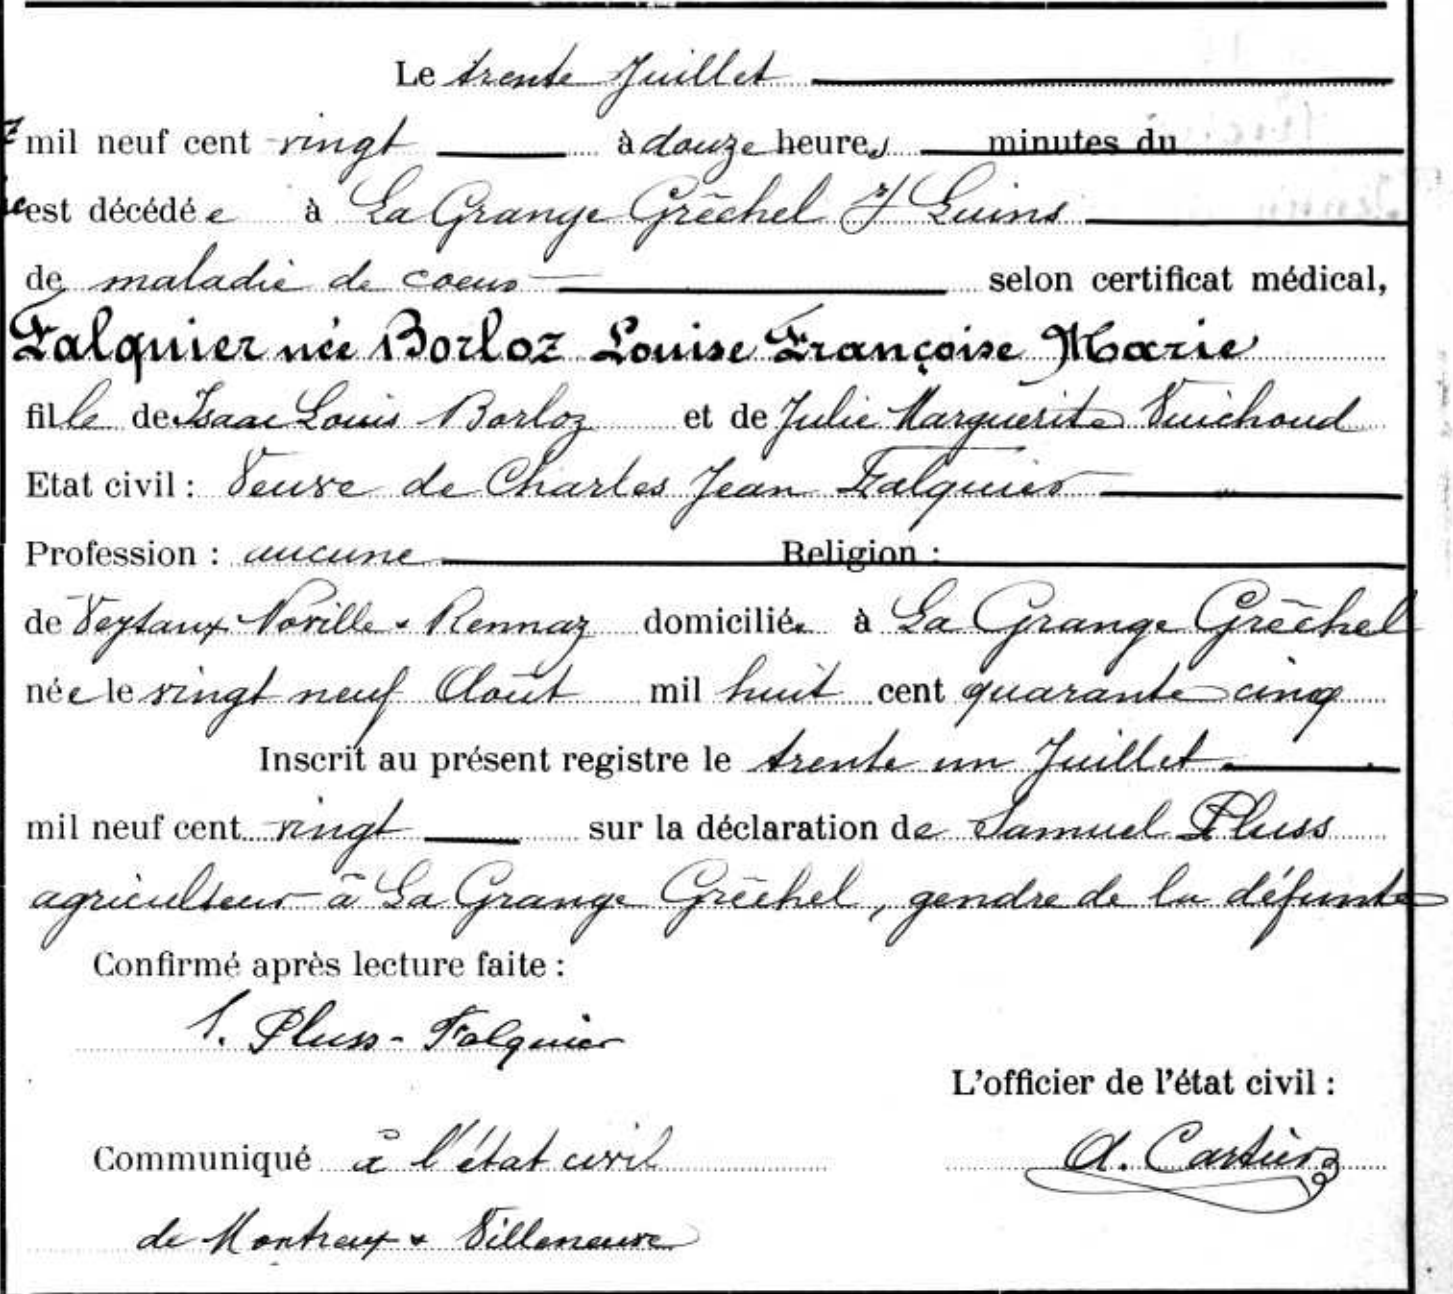 Le trente Juillet
mil neuf cent vingt à douze heures minutes du
est décédée à La Grange Gréchel s/ Luins
de maladie de coeur selon certificat médical,
Falquier née Borloz Louise Françoise Marie
fille de Isaac Louis Borloz et de Julie Marguerite Vuichoud
Etat civil : Veuve de Charles Jean Falquier
Profession : aucune Religion :
de Veytaux Noville & Rennaz domiciliée à La Grange Gréchel
née le vingt neuf Août mil huit cent quarante cinq
Inscrit au présent registre le trente un Juillet
mil neuf cent vingt sur la déclaration de Samuel Pluss
agriculteur à La Grange Gréchel, gendre de la défunte
Confirmé après lecture faite :
S. Pluss-Falquier
L'officier de l'état civil :
Communiqué à l'état civil
A. Cartier
de Montreux & Villeneuve